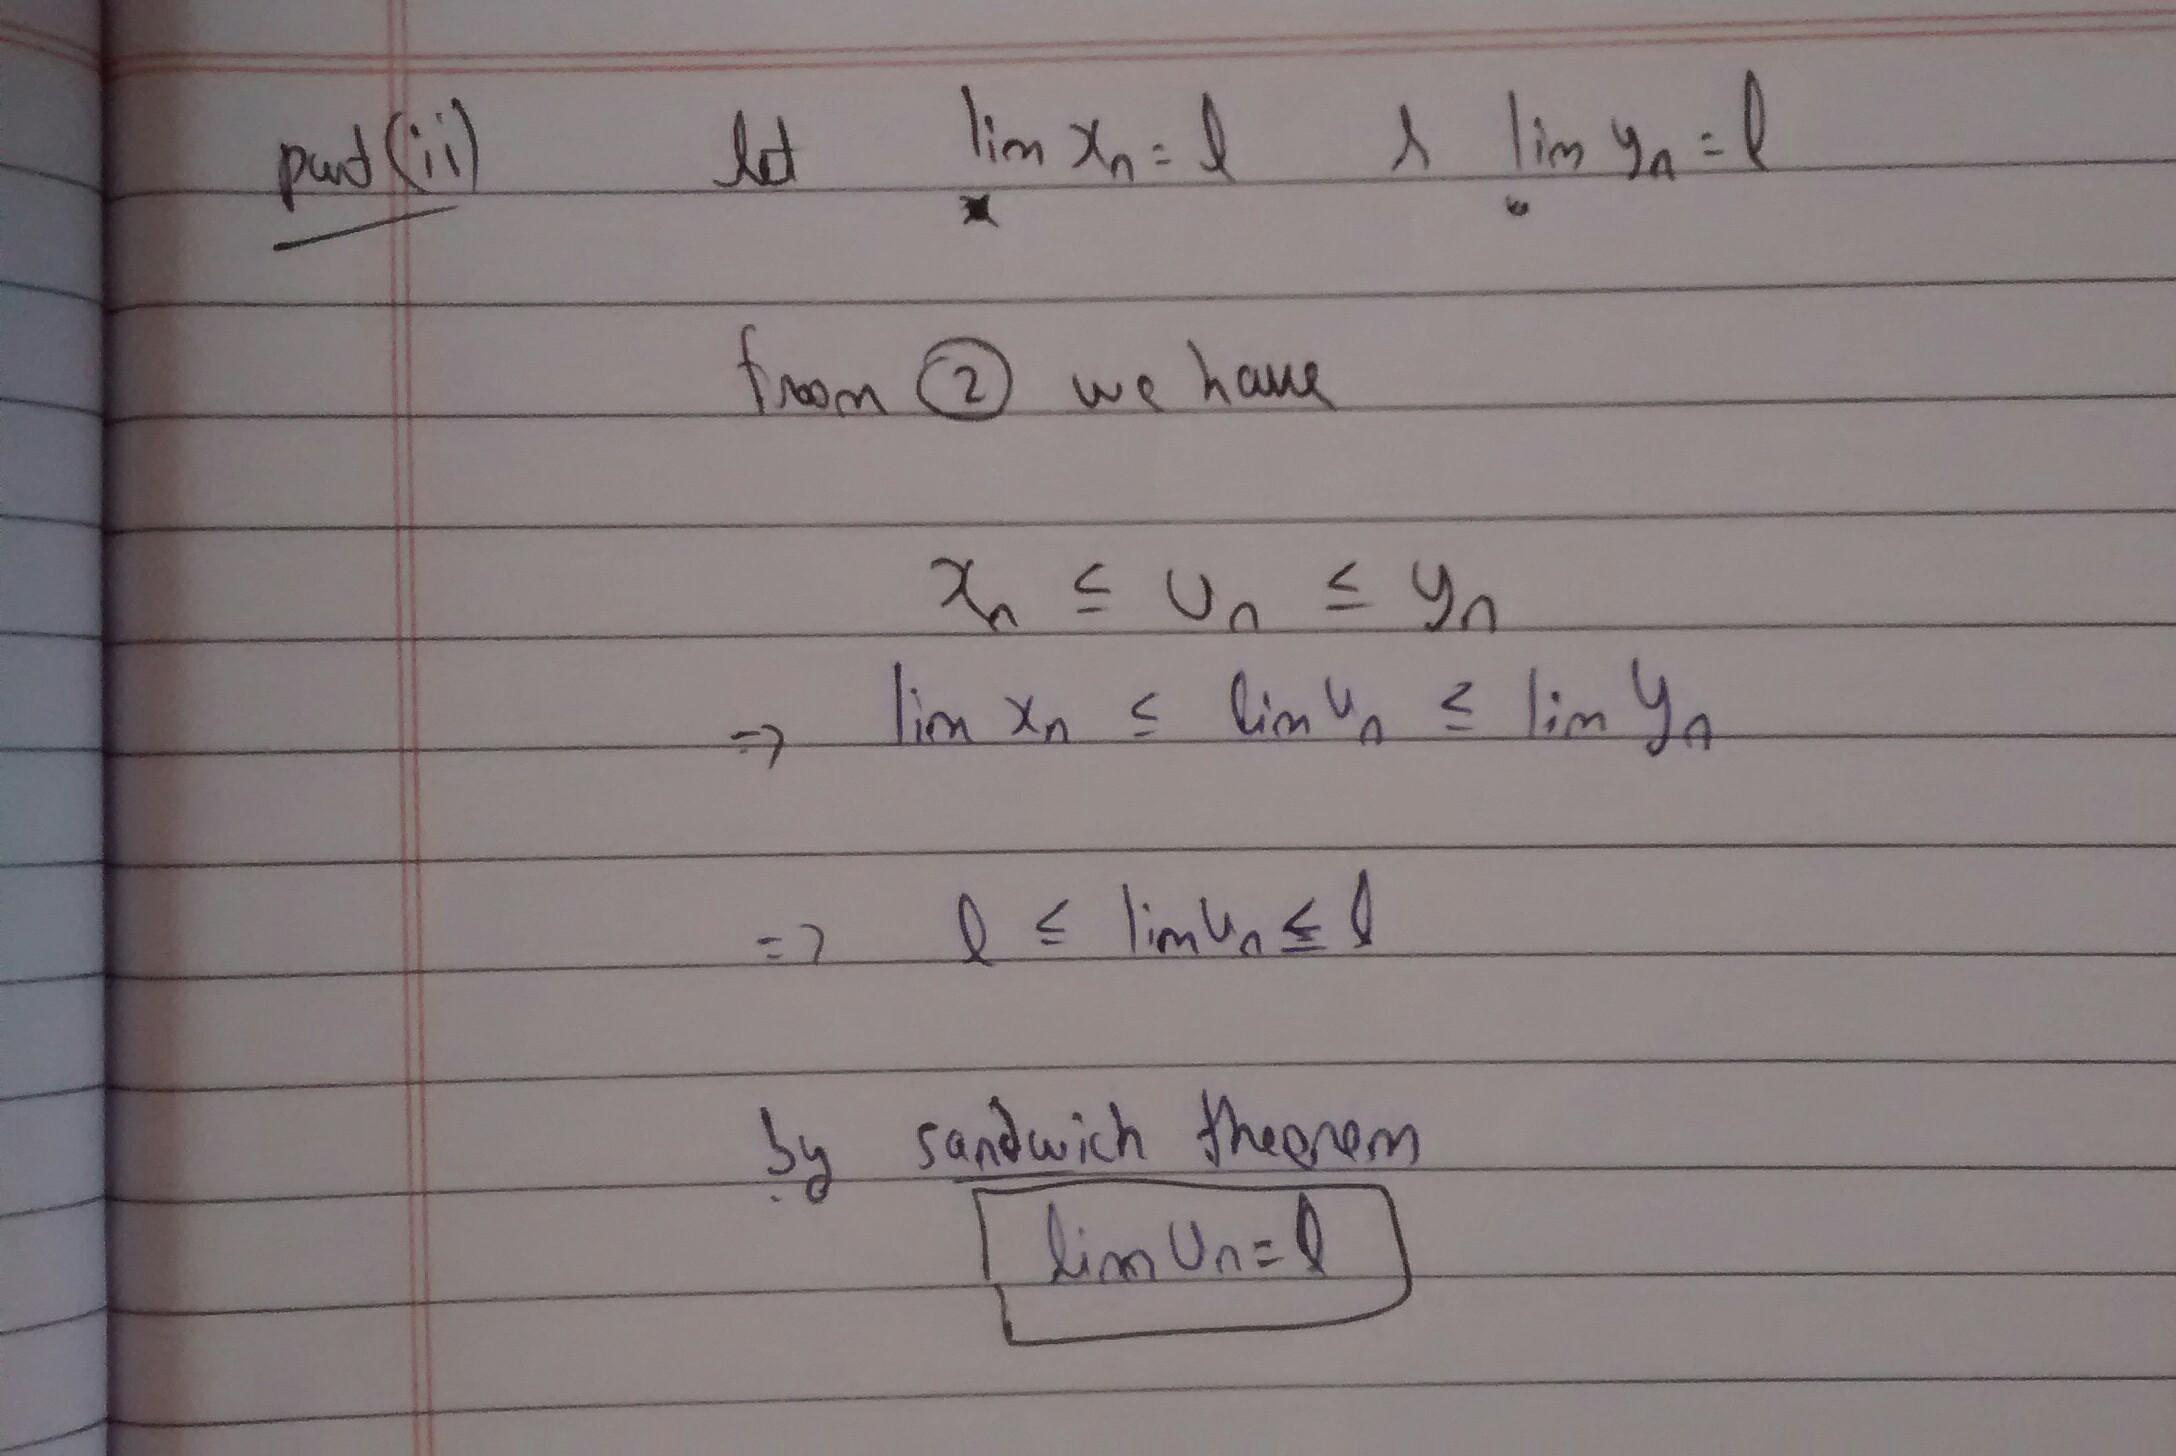 part (ii) let lim xₙ = l & lim yₙ = l
from ② we have
xₙ ≤ Uₙ ≤ yₙ
=> lim xₙ ≤ lim Uₙ ≤ lim yₙ
=> l ≤ lim Uₙ ≤ l
by sandwich theorem
lim Uₙ = l